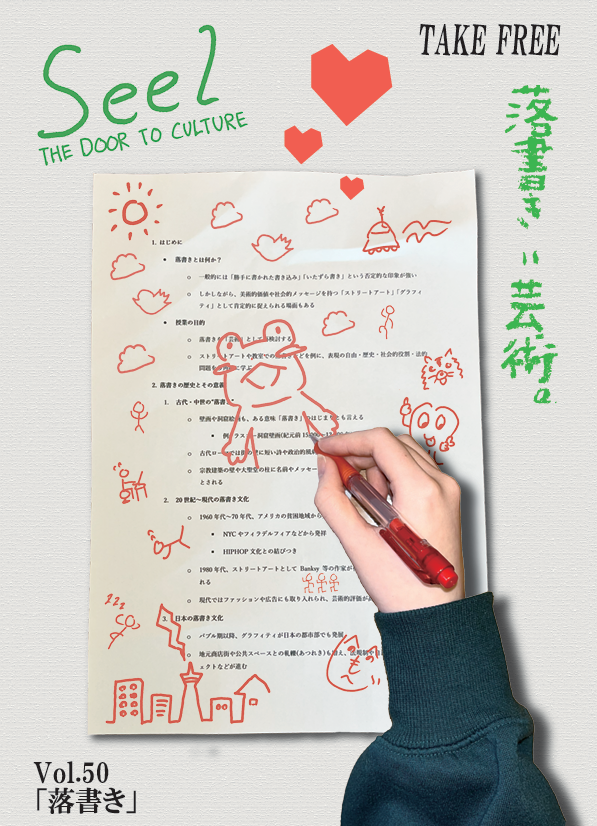 Seel
THE DOOR TO CULTURE
TAKE FREE
落書き、=芸術。
1. はじめに
落書きとは何か？
一般的には「勝手に書かれた書き込み」「いたずら書き」という否定的な印象が強い
しかしながら、美術的価値や社会的メッセージを持つ「ストリートアート」「グラフィ
ティ」として肯定的に捉えられる場面もある
授業の目的
落書きが「芸術」として
検討する
ストリートアートや教室での
などを例に、表現の自由・歴史・社会的役割・法的
問題を
学ぶ
2. 落書きの歴史とその意義
1. 古代・中世の"落書き"
壁画や洞窟絵画も、ある意味「落書き」のはじまりとも言える
例：ラスコー洞窟壁画(紀元前
古代ロー
宗教建築の壁や大聖堂の柱に名前やメッセー
とされる
2. 20世紀〜現代の落書き文化
1960年代〜70年代、アメリカの貧困地域から
NYCやフィラデルフィアなどから発祥
HIPHOP文化との結びつき
1980年代、ストリートアートとして Banksy 等の作家が
れる
現代ではファッションや広告にも取り入れられ、芸術的評価が
3. 日本の落書き文化
バブル期以降、グラフィティが日本の都市部でも発展
地元商店街や公共スペースとの軋轢(あつれき)も増え、法規制や
ェクトなどが進む
zzz
Vol.50
「落書き」